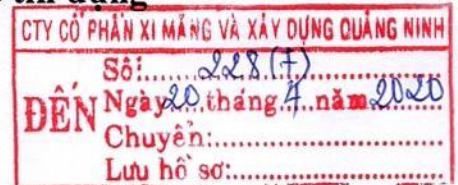 tín dụng
CTY CỔ PHẦN XI MĂNG VÀ XÂY DỰNG QUẢNG NINH
ĐẾN
Số:.......228 (F)..................
Ngày 20 tháng 4 năm 2020
Chuyển:..............................
Lưu hồ sơ:..........................